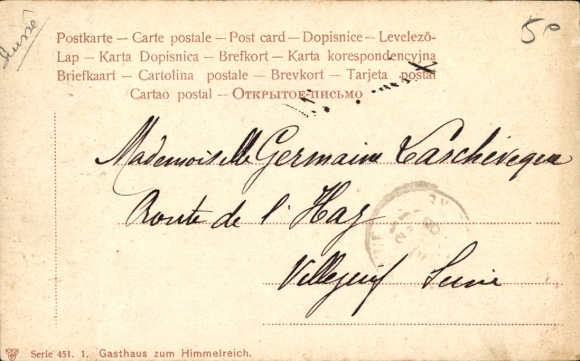 50
Postkarte – Carte postale – Post card – Dopisnice – Levelező-
Lap – Karta Dopisnica – Brefkort – Karta korespondencyjna
Briefkaart – Cartolina postale – Brevkort – Tarjeta postal
Cartao postal – Открытое-письмо
Mademoiselle Germaine
Route de l'Hay
Villejuif Seine
Serie 451. 1. Gasthaus zum Himmelreich.